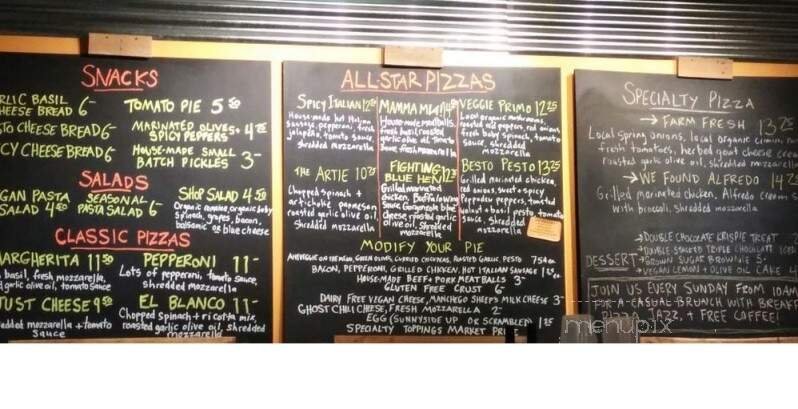 SNACKS
BASIL
BREAD 6-
TOMATO PIE 5 50
CHEESE BREAD 6-
MARINATED OLIVES +
SPICY PEPPERS
CHEESE BREAD 6-
HOUSE-MADE SMALL
BATCH PICKLES 3-
SALADS
PASTA
SALAD
SEASONAL
PASTA SALAD 6-
SHOP SALAD 4 50
Organic romaine, organic baby
spinach, grapes, bacon,
balsamic or blue cheese
CLASSIC PIZZAS
MARGHERITA 11 50
basil, fresh mozzarella,
garlic olive oil, tomato sauce
PEPPERONI 11-
Lots of pepperoni, tomato sauce,
shredded mozzarella
JUST CHEESE 9 50
mozzarella + tomato
sauce
EL BLANCO 11-
Chopped spinach + ricotta mix,
roasted garlic olive oil, shredded
mozzarella
ALL-STAR PIZZAS
SPICY ITALIAN
House-made hot Italian
sausage, pepperoni, fresh
jalapeño, tomato sauce,
shredded mozzarella
MAMMA MIA
House-made meatballs,
fresh basil, roasted
garlic olive oil, tomato
sauce, fresh mozzarella
VEGGIE PRIMO 12 25
Local organic mushrooms,
roasted red peppers, red onions,
fresh baby spinach, tomato
sauce, shredded
mozzarella
THE ARTIE
Chopped spinach +
artichoke parmesan
roasted garlic olive oil,
shredded mozzarella
FIGHTING
BLUE HEN
Grilled marinated
chicken, Buffalo wing
sauce, Gorgonzola blue
cheese, roasted garlic
olive oil, shredded
mozzarella
BESTO PESTO 13 25
Grilled marinated chicken,
red onions, sweet + spicy
Peppadew peppers, toasted
walnut + basil pesto, tomato
sauce, shredded
mozzarella
MODIFY YOUR PIE
ROASTED GARLIC, PESTO 75¢ ea
BACON, PEPPERONI, GRILLED CHICKEN, HOT ITALIAN SAUSAGE
HOUSE-MADE BEEF + PORK MEATBALLS 3-
GLUTEN FREE CRUST 6-
DAIRY FREE VEGAN CHEESE, MANCHEGO SHEEPS MILK CHEESE 3-
GHOST CHILI CHEESE, FRESH MOZZARELLA 2-
EGG (SUNNYSIDE UP OR SCRAMBLED)
SPECIALTY TOPPINGS MARKET
SPECIALTY PIZZA
→ FARM FRESH 13 25
Local spring onions, local organic
fresh tomatoes, herbed goat cheese
roasted garlic olive oil, shredded mozzarella
→ WE FOUND ALFREDO 14
Grilled marinated chicken, Alfredo cream
with broccoli, shredded mozzarella
DESSERT
→ DOUBLE CHOCOLATE CRISPIE TREAT
→ BROWN SUGAR BROWNIE
→ VEGAN LEMON + OLIVE OIL CAKE 4
JOIN US EVERY SUNDAY FROM 10AM
FOR A CASUAL BRUNCH WITH
PIZZA, JAZZ, + FREE COFFEE!
menupix